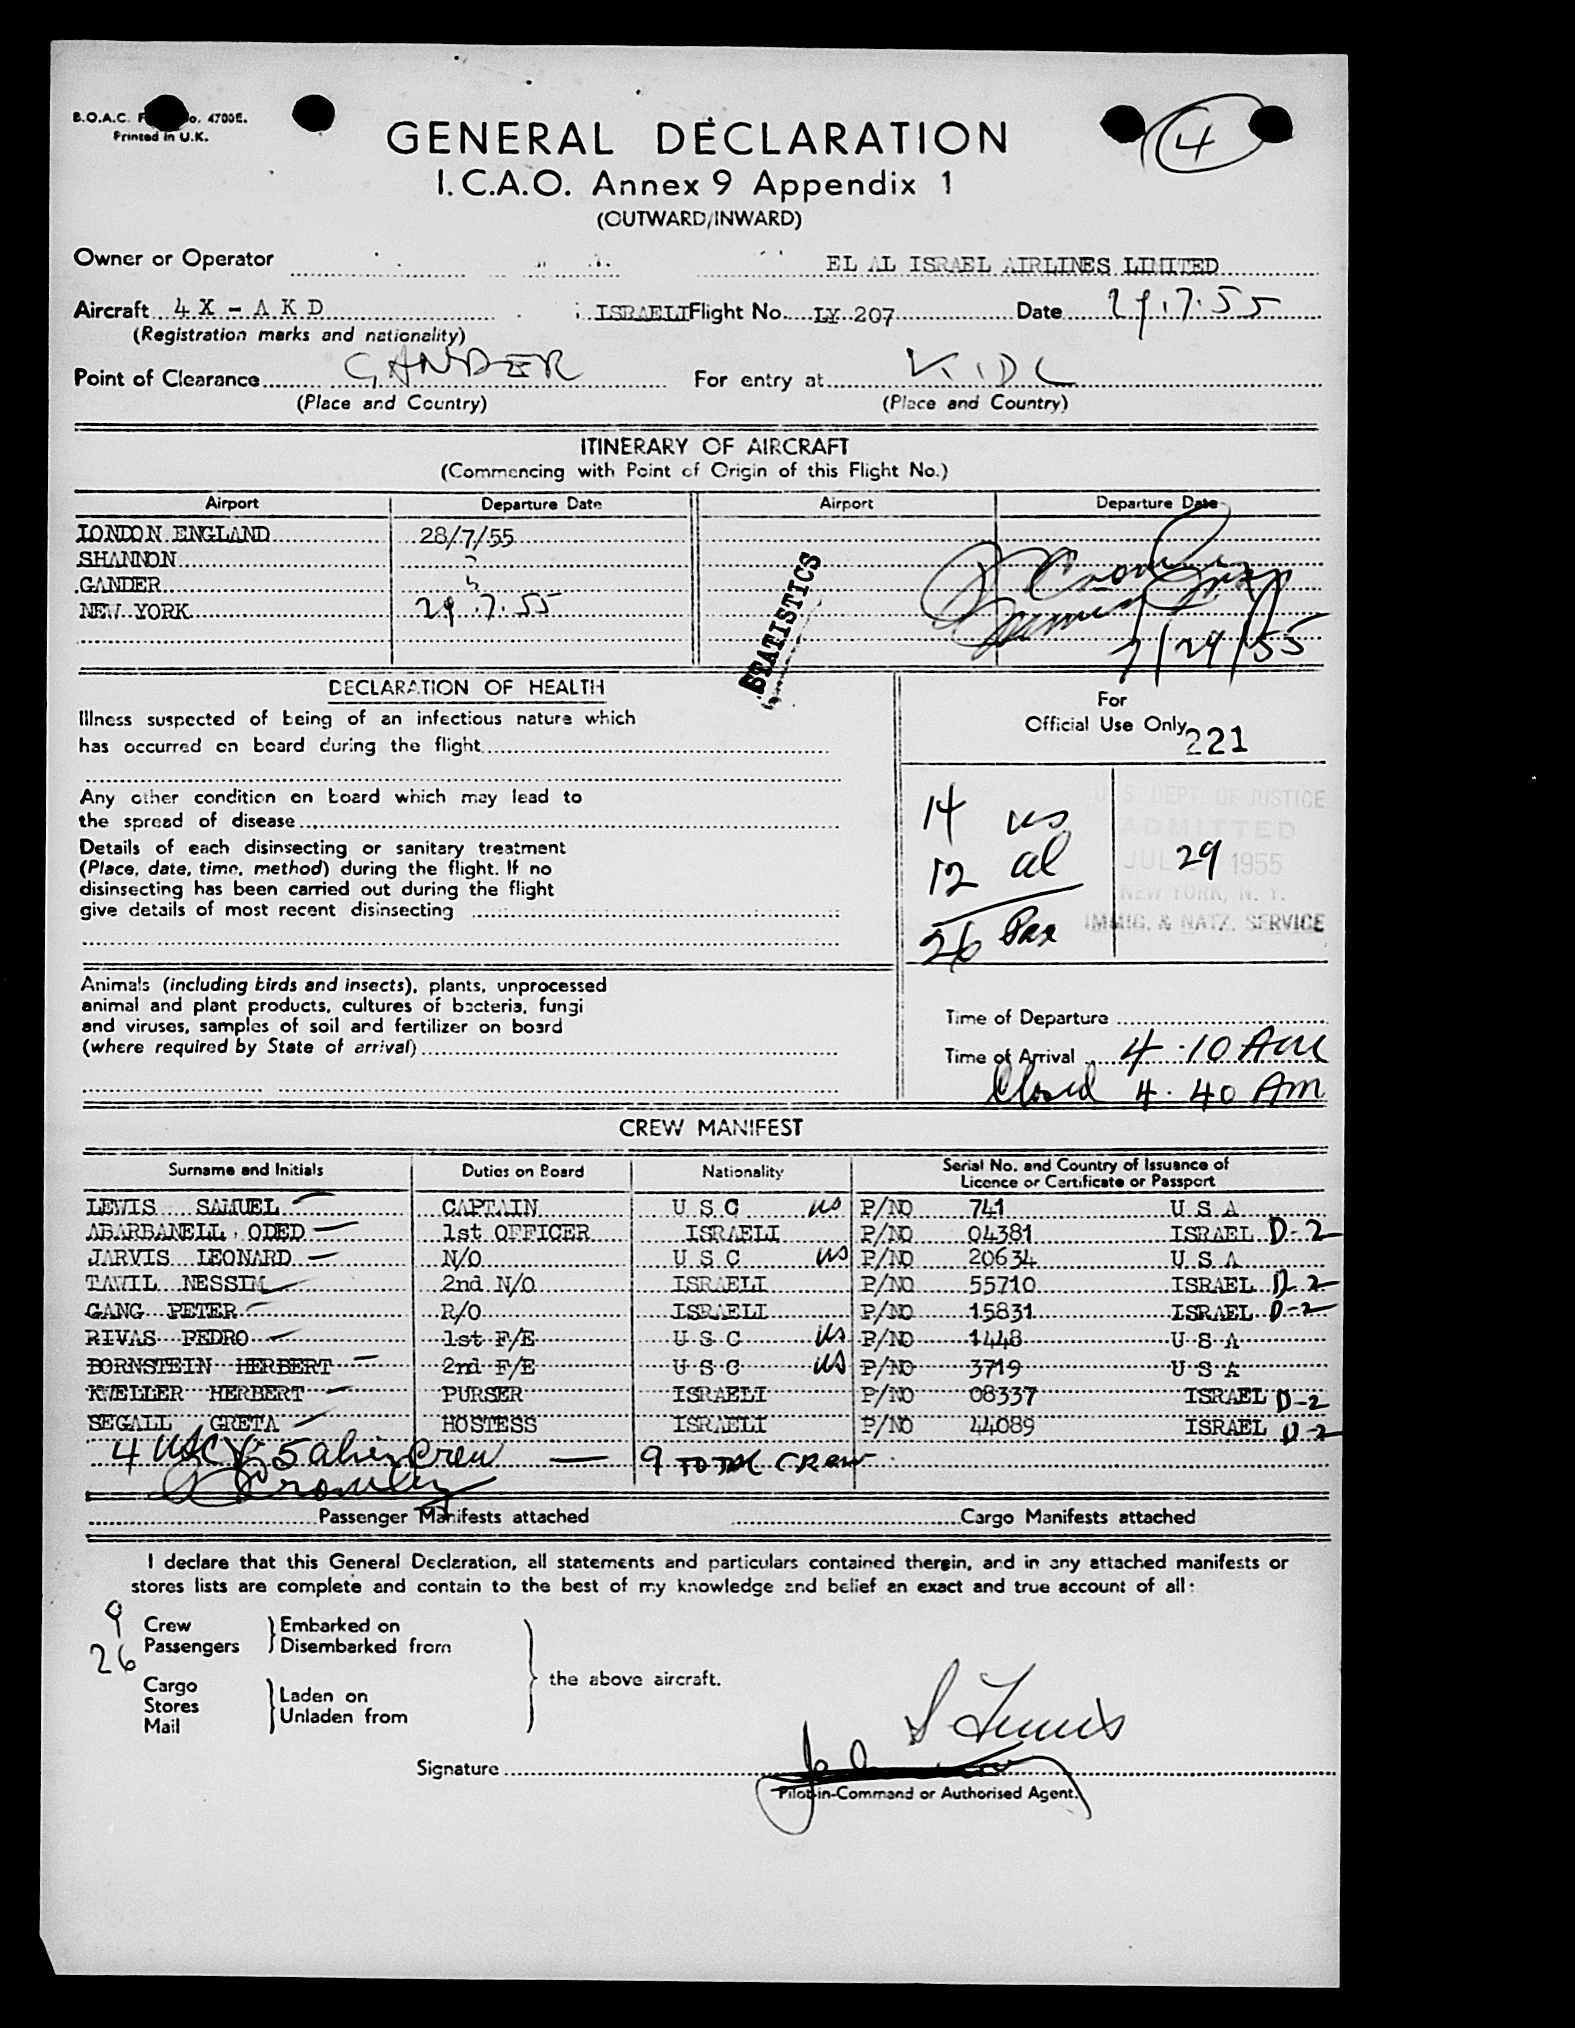 B.O.A.C. F o. 4700E.
Printed in U.K.
4
GENERAL DECLARATION
I.C.A.O. Annex 9 Appendix 1
(OUTWARD/INWARD)
Owner or Operator EL AL ISRAEL AIRLINES LIMITED
Aircraft 4X - AKD ISRAELI Flight No. LY 207 Date 29.7.55
(Registration marks and nationality)
Point of Clearance GANDER For entry at KIDL
(Place and Country) (Place and Country)
ITINERARY OF AIRCRAFT
(Commencing with Point of Origin of this Flight No.)
Airport Departure Date Airport Departure Date
LONDON ENGLAND 28/7/55
SHANNON
GANDER
NEW YORK 29.7.55
7/29/55
STATISTICS
DECLARATION OF HEALTH
Illness suspected of being of an infectious nature which
has occurred on board during the flight
Any other condition on board which may lead to
the spread of disease
Details of each disinsecting or sanitary treatment
(Place, date, time, method) during the flight. If no
disinsecting has been carried out during the flight
give details of most recent disinsecting
Animals (including birds and insects), plants, unprocessed
animal and plant products, cultures of bacteria, fungi
and viruses, samples of soil and fertilizer on board
(where required by State of arrival)
For
Official Use Only
221
14 us
12 al
26 Pax
U.S. DEPT. OF JUSTICE
ADMITTED
JUL 29 1955
NEW YORK, N. Y.
IMMIG. & NATZ. SERVICE
Time of Departure
Time of Arrival 4.10 AM
Closed 4.40 AM
CREW MANIFEST
Surname and Initials Duties on Board Nationality Serial No. and Country of Issuance of
Licence or Certificate or Passport
LEWIS SAMUEL CAPTAIN U S C us P/NO 741 U S A
ABARBANELL, ODED 1st OFFICER ISRAELI P/NO 04381 ISRAEL D-2
JARVIS LEONARD N/O U S C us P/NO 20634 U S A
TAWIL NESSIM 2nd N/O ISRAELI P/NO 55710 ISRAEL D-2
GANG PETER R/O ISRAELI P/NO 15831 ISRAEL D-2
RIVAS PEDRO 1st F/E U S C us P/NO 1448 U S A
BORNSTEIN HERBERT 2nd F/E U S C us P/NO 3719 U S A
KWELLER HERBERT PURSER ISRAELI P/NO 08337 ISRAEL D-2
SEGALL GRETA HOSTESS ISRAELI P/NO 44089 ISRAEL D-2
4 USC 5 alien Crew — 9 TOTAL CREW
Passenger Manifests attached Cargo Manifests attached
I declare that this General Declaration, all statements and particulars contained therein, and in any attached manifests or
stores lists are complete and contain to the best of my knowledge and belief an exact and true account of all:
9 Crew Embarked on
26 Passengers Disembarked from
the above aircraft.
Cargo Laden on
Stores Unladen from
Mail
S Lewis
Signature
Pilot-in-Command or Authorised Agent.